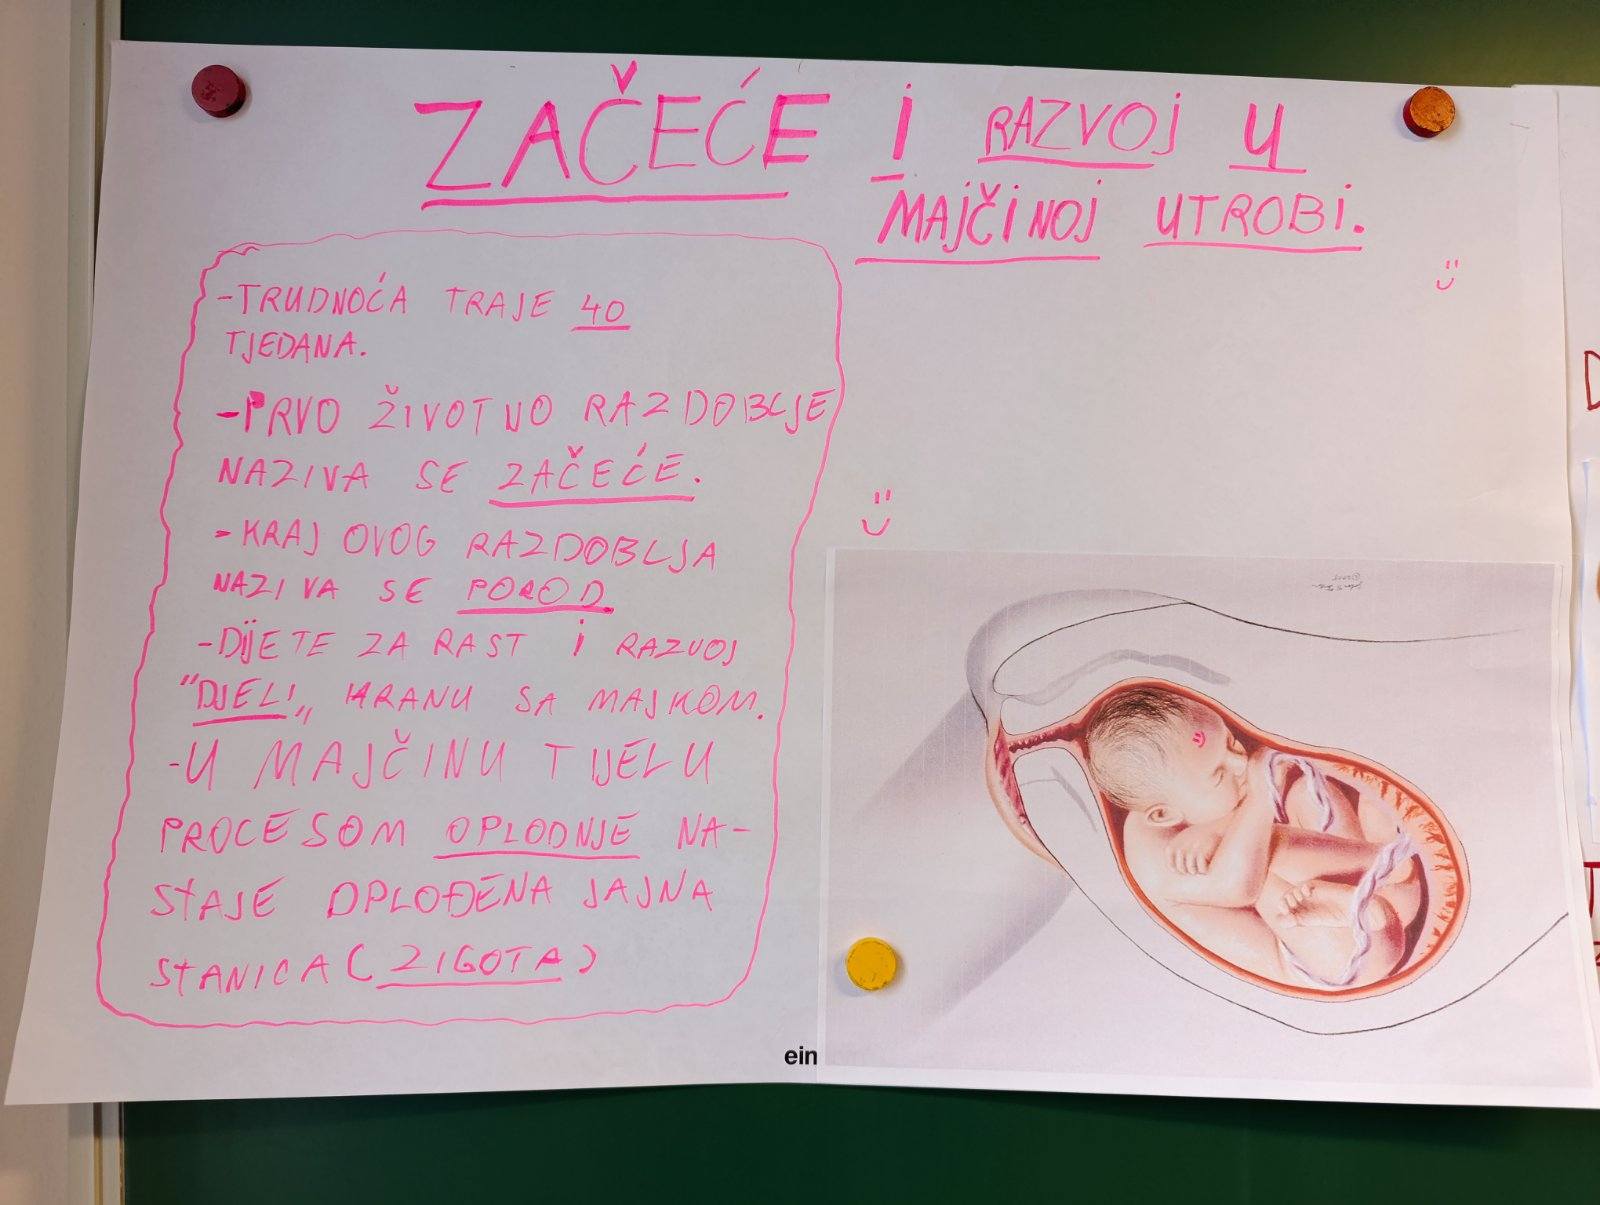 ZAČEĆE i RAZVOJ U
MAJČiNOJ UTROBi.
-TRUDNOĆA TRAJE 40
TJEDANA.
-PRVO ŽIVOTNO RAZDOBLJE
NAZIVA SE ZAČEĆE.
-KRAJ OVOG RAZDOBLJA
NAZIVA SE POROD.
-DIJETE ZA RAST i RAZVOJ
"DJELI„ HRANU SA MAJKOM.
-U MAJČINU TIJELU
PROCESOM OPLODNJE NA-
STAJE OPLOĐENA JAJNA
STANICA (ZIGOTA)
ein